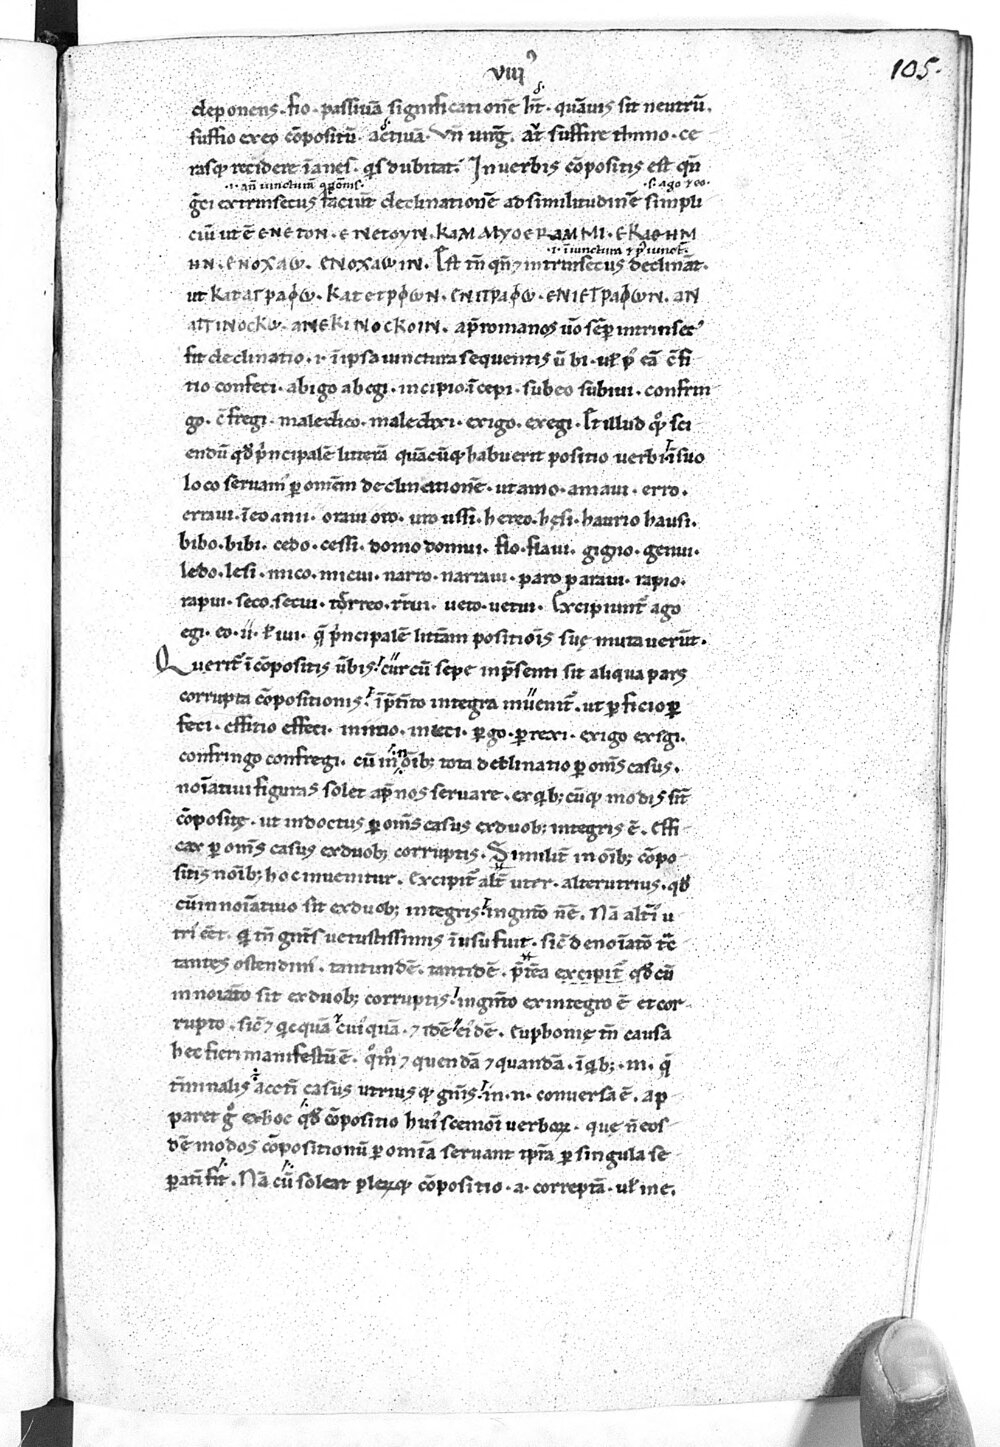 VIII
105.
deponens. fio. passiuā significationē hr̄t. quāuis sit neutrū.
suffio ex eo cōpositū. actiuā. Vn̄ uirḡ. at suffire thimo. ce
rasq; recidere īanes. q̄s dubitat. In uerbis cōpositis est qn̄
.i. añ iuncturā p̄positionis. .s. ago & eo.
gr̄ci extrinsecus faciūt declinationē ad similitudinē simpli
ciū ut ē ЄNЄTON. ЄNЄTOYN. KAMMYO ЄKAMMI. ЄKAΘHM
.i. in iunctura & p̄ iuncturā.
HN. ЄNOXAω. ЄNOXAωIN. Est tn̄ qn̄ & intrinsecus declināt.
ut KATAΓPAΦω. KATЄΓPΦωN. ЄΠIΓPAΦω. ЄΠIЄΓPAΦωN. AN
AΓΓINOCKω. ANЄKINOCKOIN. ap̄ romanos uō sēp intrinsec'
fit declinatio. i. ī ipsa iunctura sequentis ūbi. ul' p' eā c̄fi
tio confeci. abigo abegi. incipio īcepi. subeo subiui. confrin
go. c̄fregi. maledico. maledixi. exigo. exegi. Et illud q̊; sci
endū qd̄ p'ncipalē litterā quācūq; habuerit positio uerbi ī suo
loco seruam' p omēm declinationē. ut amo. amaui. erro.
erraui. īeo anii. oraui oro. uro ussi. hereo. hęsi. haurio hausi.
bibo. bibi. cedo. cessi. domo domui. flo. flaui. gigno. genui.
ledo. lesi. mico. micui. narro. narraui. paro paraui. rapio.
rapui. seco. secui. torreo. torrui. ueto. uetui. Excipiunt ago
egi. eo. ii. l' iui. q̄ p'ncipalē littām positiōis suę mutauerūt.
Querit ī cōpositis ūbis. cur cū sepe in p̄senti sit aliqua pars
corrupta cōpositionis. ī p̄tito integra inuenit. ut pficio p
feci. efficio effeci. inicio. inieci. pgo. prexi. exigo exegi.
confringo confregi. cū in nōib; tota declinatio p om̄s casus.
noīatiui figuras solet ap̄ nos seruare. ex qib; cūq; modis sit
cōpositę. ut indoctus p om̄s casus ex duob; integris ē. effi
cax p om̄s casus ex duob; corruptis. Similit̄ in oīb; cōpo
sitis nōib; hoc inuenitur. excipit alt̄ uter. alterutrius. qd̄
cūm noīatiuo sit ex duob; integris. in gnīto n̄ē. Nā alt̄i' u
tri' eēt. q tn̄ gnīts uetustissimis ī usu fuit. sic̄ de noīatō tc̄
tantes ostendim'. tantundē. tantidē. p̄tēa excipit qd̄ cū
in noīato sit ex duob; corruptis. in gnīto ex integro ē et cor
rupto. sic̄ & qcquā cui'quā. & idē ei'dē. Euphonię tn̄ causa
hec fieri manifestū ē. q̊m & quendā & quandā. ī qib;. m. q̄
t̄minalis accti casus utriusq; gnīs. in. n. conuersa ē. ap
paret g̊ ex hoc qd̄ cōpositio hui'scemōi uerborum. que n̄ eos
dē modos cōpositionū p omīa seruant tp̄ra p singula se
patī fit. Nā cū soleat plerūq; cōpositio. a. correptā. ul' in e.